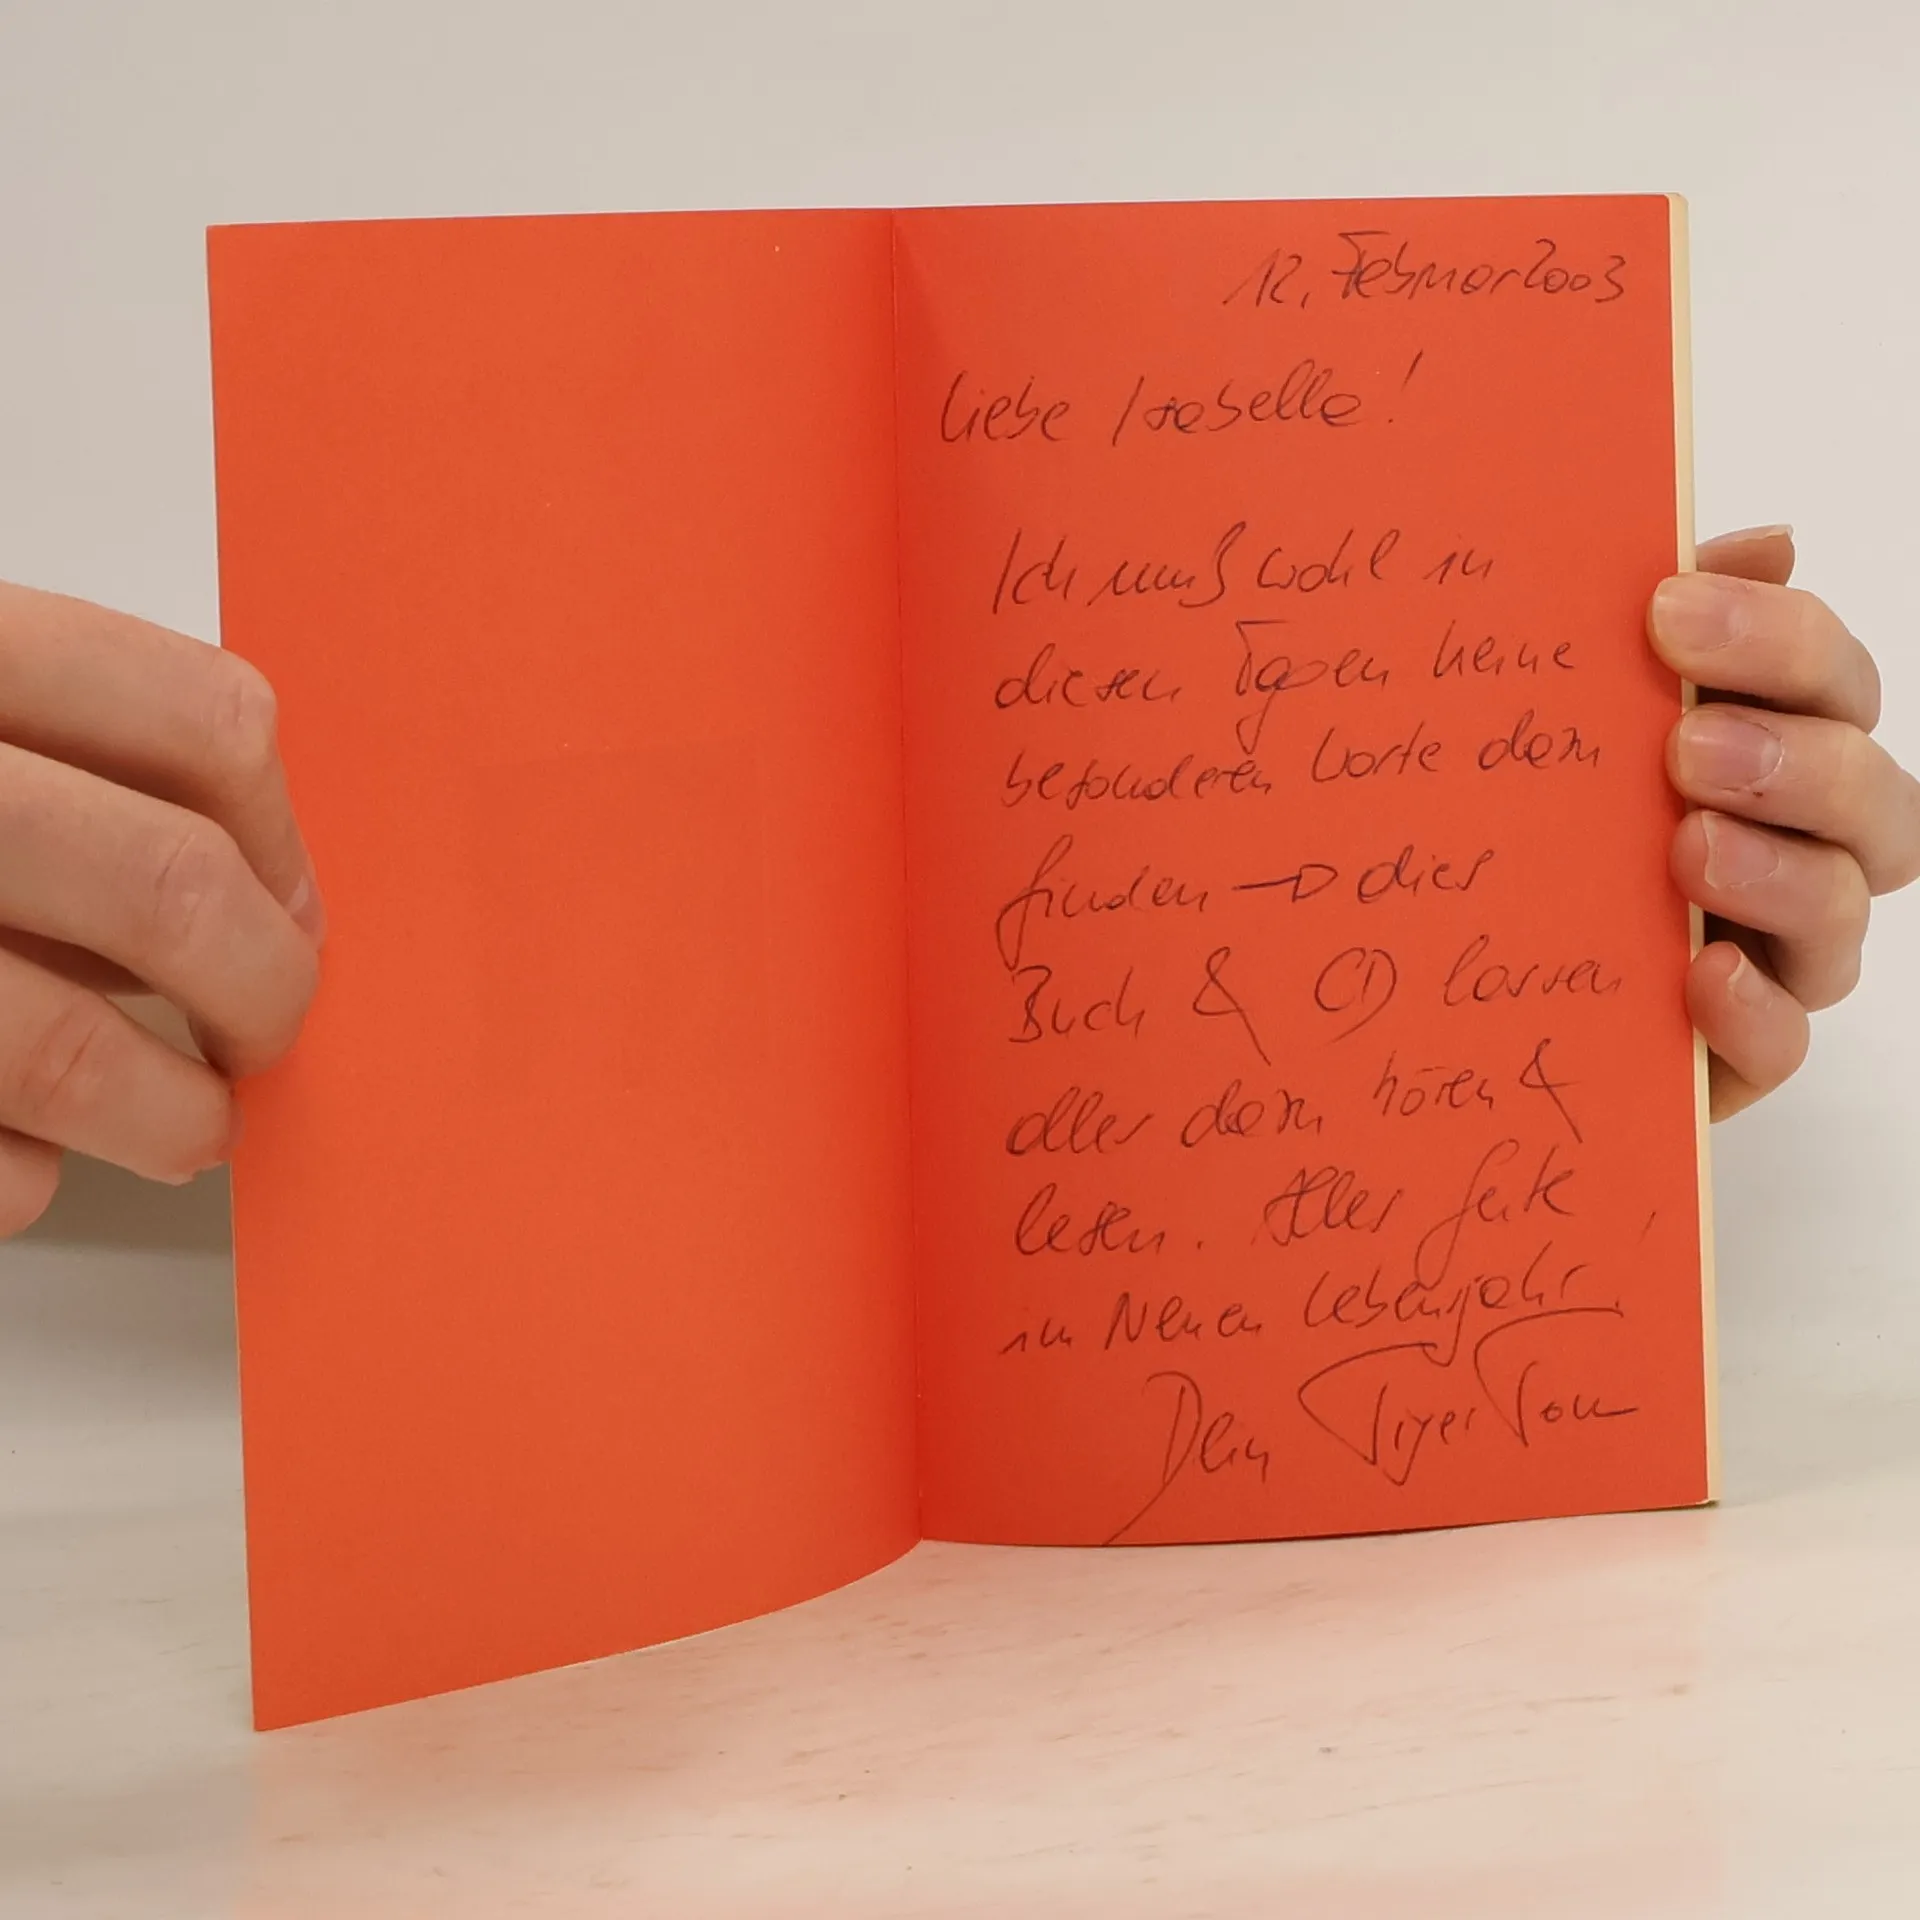 12. Februar 2003
Liebe Isabelle!
Ich muß wohl in
diesen Tagen keine
besonderen Worte dazu
finden → dies
Buch & CD lassen
alles dazu hören &
lesen. Alles Gute
im Neuen Lebensjahr.
Dein Tiger Tom